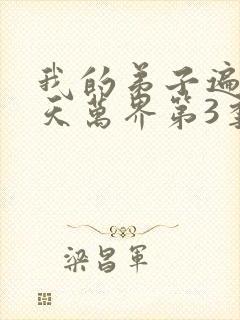 我的弟子遍
天萬界第3季
梁昌軍